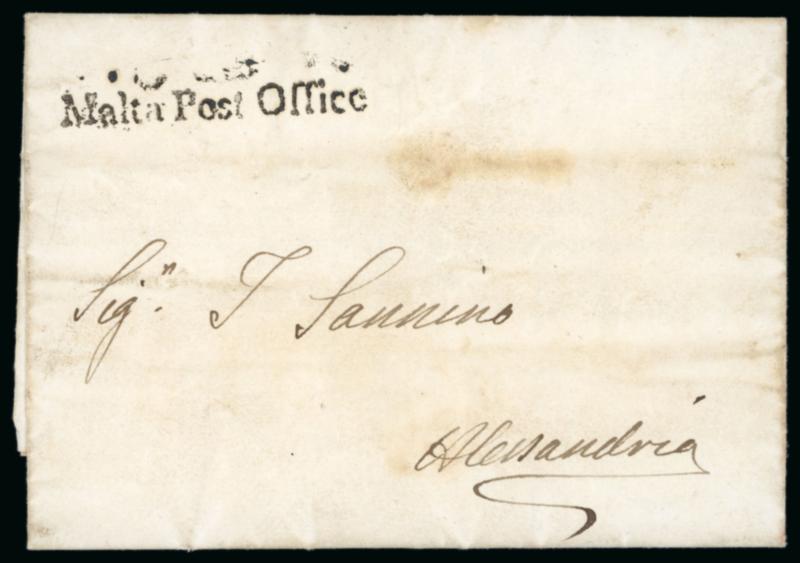 Malta Post Office
Sig.n T Sannino
Alessandria